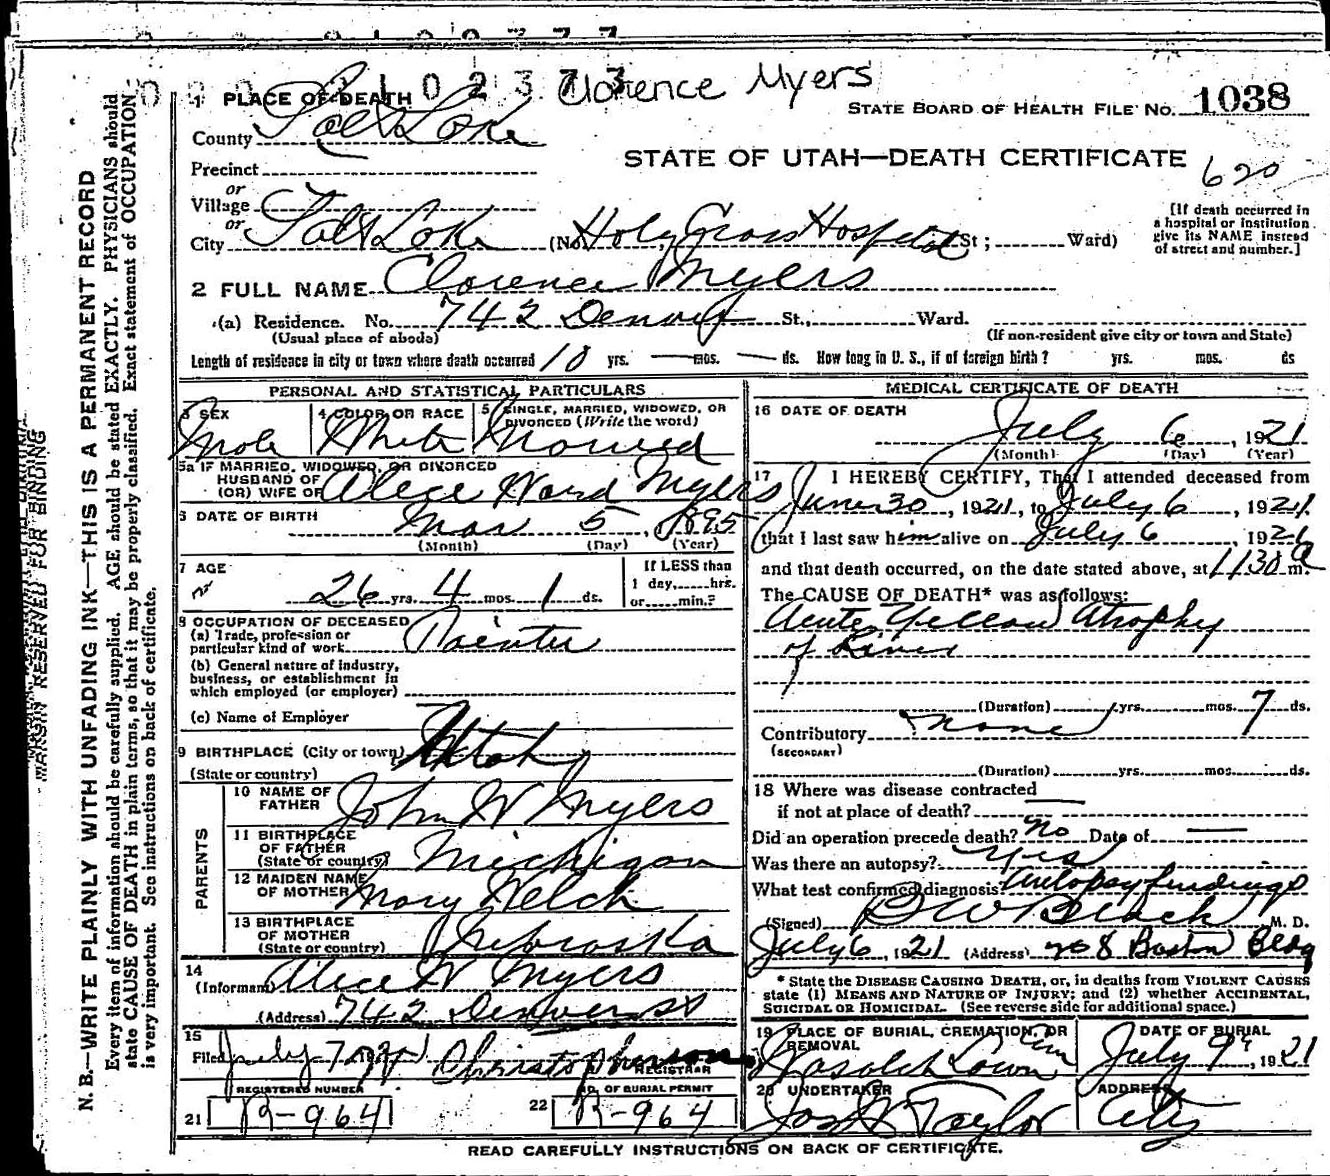 102373 Clarence Myers
STATE BOARD OF HEALTH FILE NO. 1038
1 PLACE OF DEATH
County Salt Lake
STATE OF UTAH—DEATH CERTIFICATE
620
Precinct
or
Village
or
City Salt Lake (No. Holy Cross Hospital St; Ward)
[If death occurred in
a hospital or institution
give its NAME instead
of street and number.]
2 FULL NAME Clarence Myers
(a) Residence. No. 742 Denver St., Ward.
(Usual place of abode) (If non-resident give city or town and State)
Length of residence in city or town where death occurred 10 yrs. — mos. — ds. How long in U. S., if of foreign birth? yrs. mos. ds
PERSONAL AND STATISTICAL PARTICULARS
3 SEX
Male
4 COLOR OR RACE
White
5 SINGLE, MARRIED, WIDOWED, OR
DIVORCED (Write the word)
Married
5a IF MARRIED, WIDOWED, OR DIVORCED
HUSBAND OF
(OR) WIFE OF Alice Ward Myers
6 DATE OF BIRTH Mar 5, 1895
(Month) (Day) (Year)
7 AGE
26 yrs. 4 mos. 1 ds.
If LESS than
1 day, hrs.
or min.?
8 OCCUPATION OF DECEASED
(a) Trade, profession or
particular kind of work Painter
(b) General nature of industry,
business, or establishment in
which employed (or employer)
(c) Name of Employer
9 BIRTHPLACE (City or town) Utah
(State or country)
PARENTS
10 NAME OF
FATHER John W Myers
11 BIRTHPLACE
OF FATHER
(State or country) Michigan
12 MAIDEN NAME
OF MOTHER Mary Welch
13 BIRTHPLACE
OF MOTHER
(State or country) Nebraska
14
(Informant Alice W Myers
(Address) 742 Denver St
15
Filed July 7 1921 Christopherson
REGISTRAR
REGISTERED NUMBER
21 R-964
NO. OF BURIAL PERMIT
22 R-964
MEDICAL CERTIFICATE OF DEATH
16 DATE OF DEATH
July 6, 1921
(Month) (Day) (Year)
17 I HEREBY CERTIFY, That I attended deceased from
June 30, 1921, to July 6, 1921
that I last saw him alive on July 6, 1921
and that death occurred, on the date stated above, at 1130 a m.
The CAUSE OF DEATH* was as follows:
Acute Yellow Atrophy
of Liver
(Duration) yrs. mos. 7 ds.
Contributory none
(SECONDARY)
(Duration) yrs. mos. ds.
18 Where was disease contracted
if not at place of death? —
Did an operation precede death? No Date of —
Was there an autopsy? Yes
What test confirmed diagnosis Autopsy findings
(Signed) B W Black M. D.
July 6, 1921 (Address) 708 Boston Bldg
* State the DISEASE CAUSING DEATH, or, in deaths from VIOLENT CAUSES
state (1) MEANS AND NATURE OF INJURY; and (2) whether ACCIDENTAL,
SUICIDAL OR HOMICIDAL. (See reverse side for additional space.)
19 PLACE OF BURIAL, CREMATION, OR
REMOVAL
Wasatch Lawn Cem
DATE OF BURIAL
July 9th, 1921
20 UNDERTAKER
Jos W Taylor
ADDRESS
City
READ CAREFULLY INSTRUCTIONS ON BACK OF CERTIFICATE.
MARGIN RESERVED FOR BINDING
N. B.—WRITE PLAINLY WITH UNFADING INK—THIS IS A PERMANENT RECORD
Every item of information should be carefully supplied. AGE should be stated EXACTLY. PHYSICIANS should
state CAUSE OF DEATH in plain terms, so that it may be properly classified. Exact statement of OCCUPATION
is very important. See instructions on back of certificate.